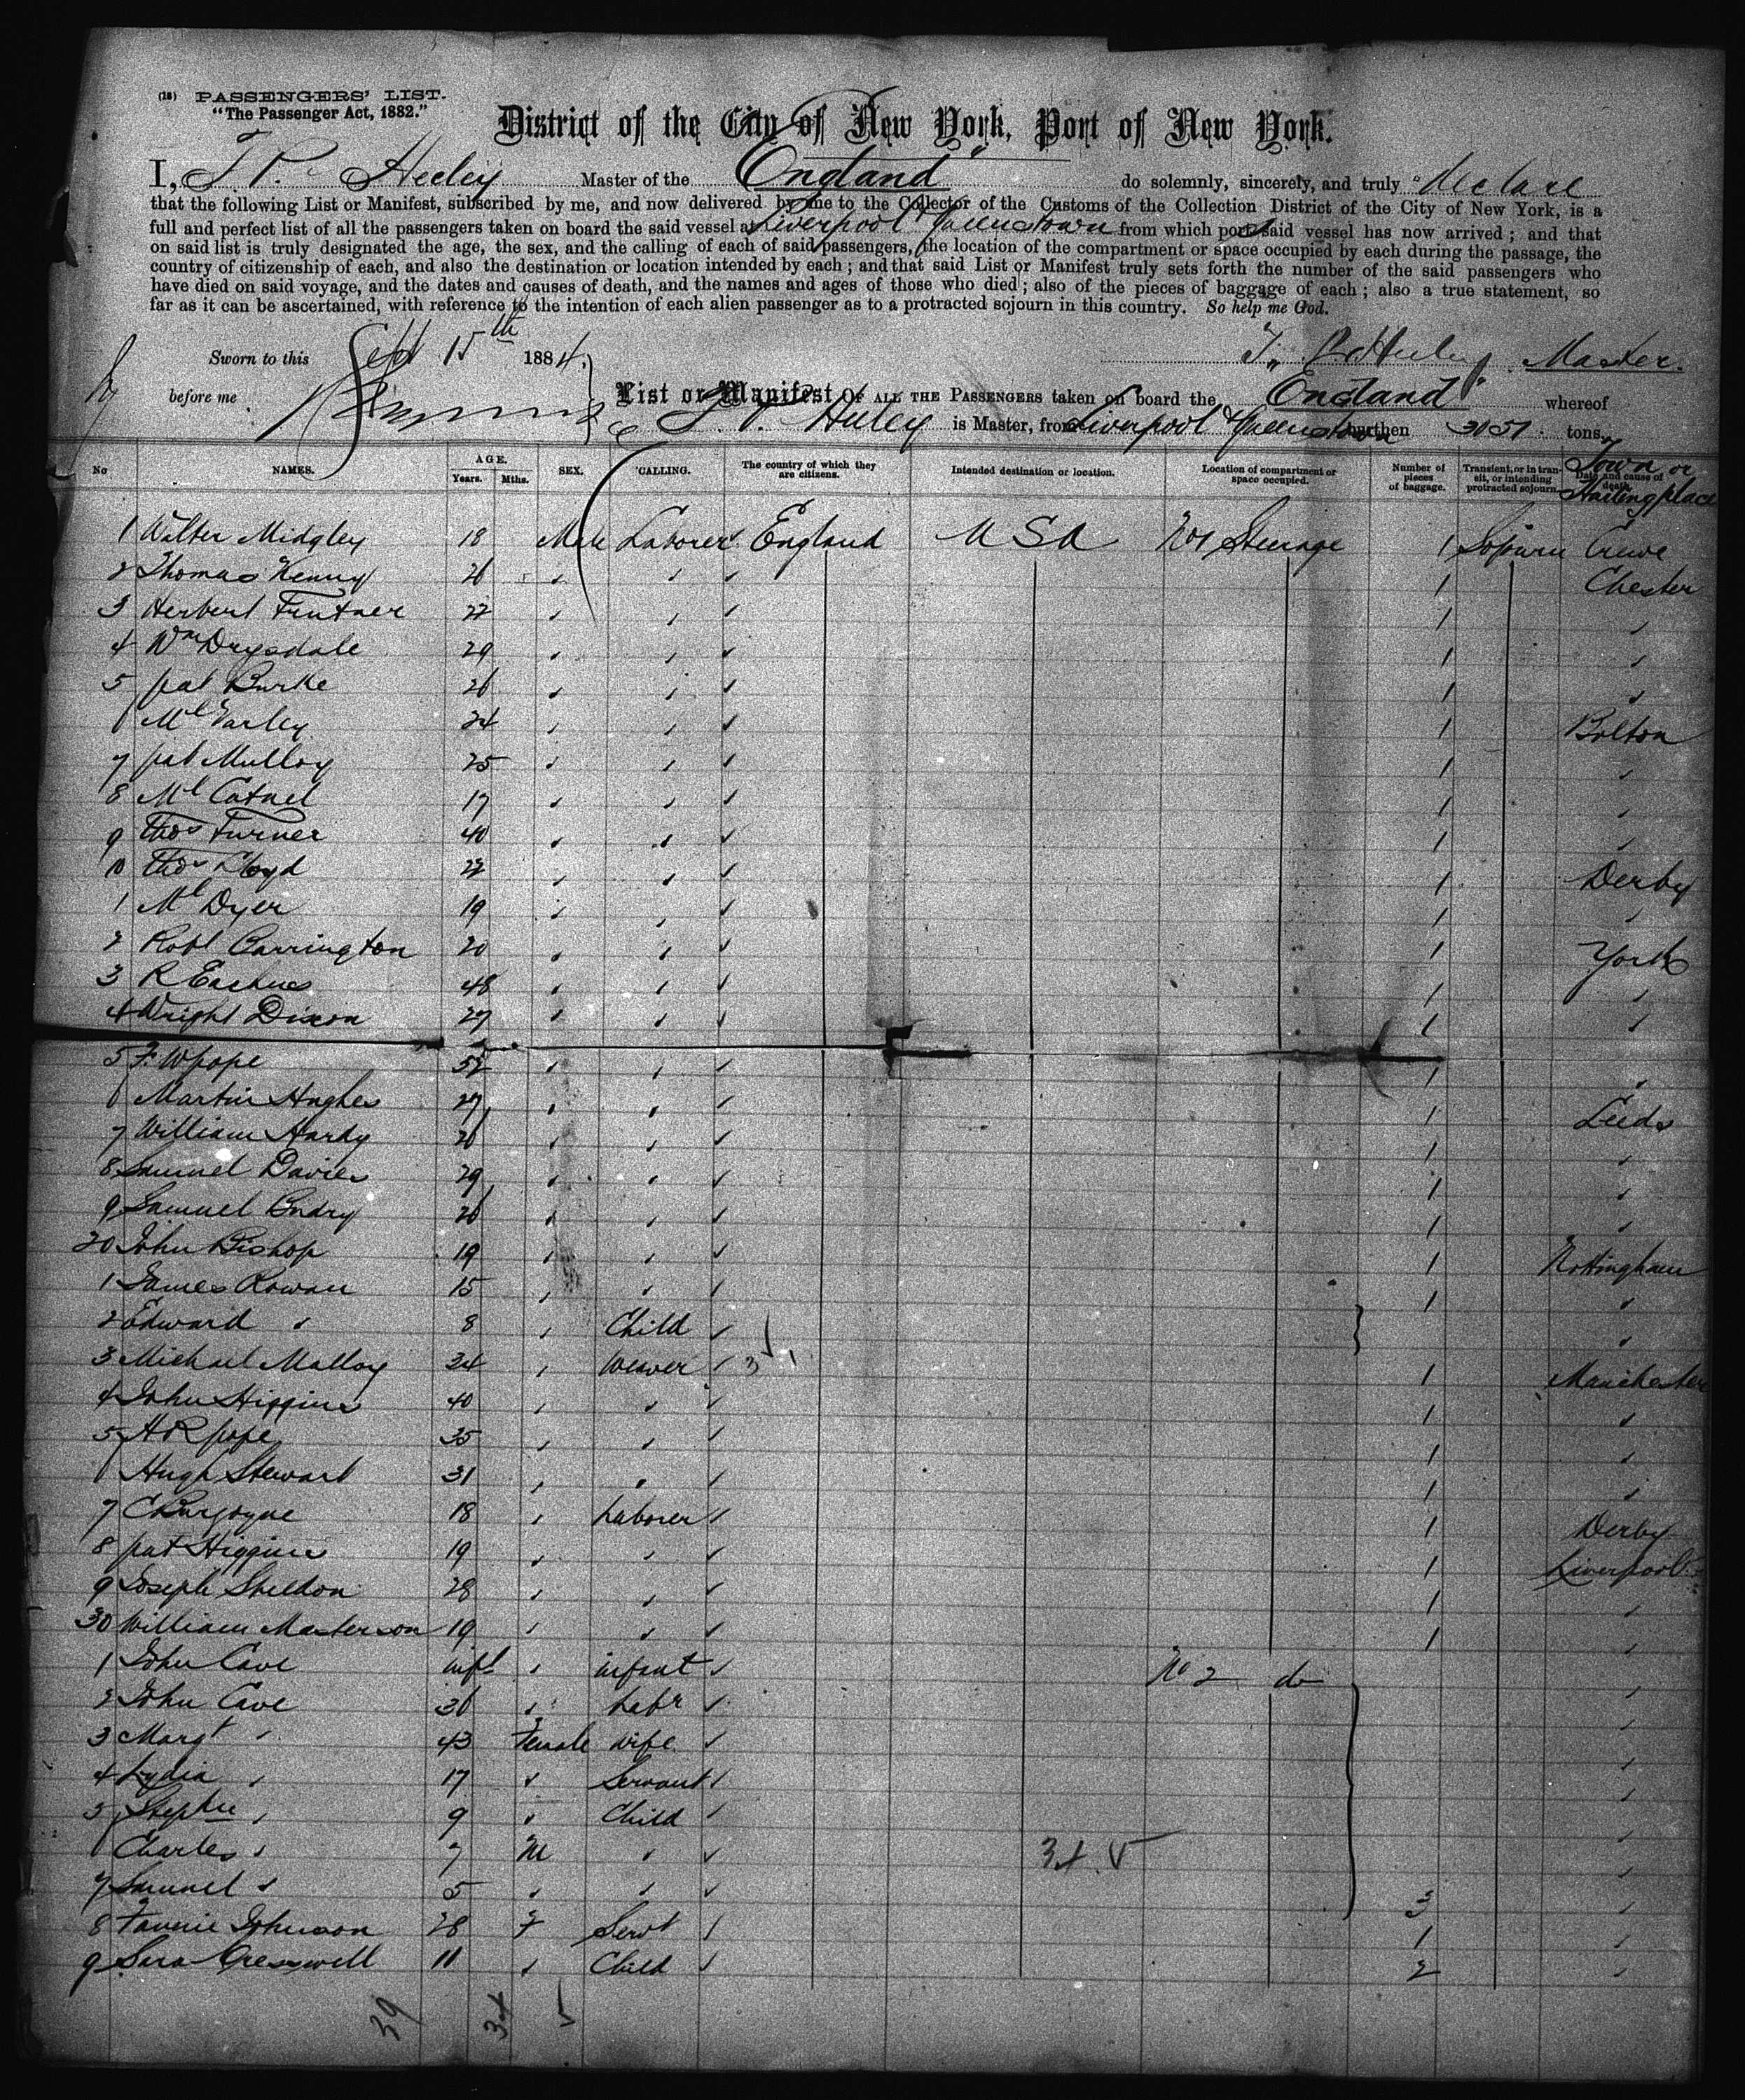 (18) PASSENGERS' LIST.
"The Passenger Act, 1882."
District of the City of New York, Port of New York.
I, Heeley Master of the "England" do solemnly, sincerely, and truly declare
that the following List or Manifest, subscribed by me, and now delivered by me to the Collector of the Customs of the Collection District of the City of New York, is a
full and perfect list of all the passengers taken on board the said vessel at Liverpool & Queenstown from which ports said vessel has now arrived; and that
on said list is truly designated the age, the sex, and the calling of each of said passengers, the location of the compartment or space occupied by each during the passage, the
country of citizenship of each, and also the destination or location intended by each; and that said List or Manifest truly sets forth the number of the said passengers who
have died on said voyage, and the dates and causes of death, and the names and ages of those who died; also of the pieces of baggage of each; also a true statement, so
far as it can be ascertained, with reference to the intention of each alien passenger as to a protracted sojourn in this country. So help me God.
Sworn to this Sept 15th 1884. Heeley Master.
before me
List or Manifest OF ALL THE PASSENGERS taken on board the "England" whereof
Heeley is Master, from Liverpool & Queenstown burthen tons.
No NAMES. AGE. Years. Mths. SEX. CALLING. The country of which they are citizens. Intended destination or location. Location of compartment or space occupied. Number of pieces of baggage. Transient, or in transit, or intending protracted sojourn. Date and cause of death. Town or Hailing place
1 Walter Midgley 18 Male Laborer England USA No 1 Steerage 1 Sojourn Crewe
2 Thomas Kenny 26 " " " 1 Chester
3 Herbert 22 " " " 1 "
4 Wm Drysdale 29 " " " 1 "
5 Pat Burke 26 " " " 1 "
6 Ml Varley 24 " " " 1 Bolton
7 Pat Mulloy 25 " " " 1 "
8 Ml 17 " " " 1 "
9 Thos Turner 40 " " " 1 "
10 Thos Lloyd 22 " " " 1 Derby
1 Ml Dyer 19 " " " 1 "
2 Robt Carrington 20 " " " 1 York
3 R 48 " " " 1 "
4 Wright Dixon 27 " " " 1 "
5 F. W Pope 52 " " " 1 "
6 Martin Hughes 27 " " " 1 Leeds
7 William Hardy 26 " " " 1 "
8 Samuel Davies 29 " " " 1 "
9 Samuel 26 " " " 1 "
20 John Bishop 19 " " " 1 Nottingham
1 James Rowan 15 " " " 1 "
2 Edward " 8 " Child " "
3 Michael Malloy 34 " Weaver " 1 Manchester
4 John Higgins 40 " " " 1 "
5 H R Pope 35 " " " 1 "
6 Hugh Stewart 31 " " " 1 "
7 C Burgoyne 18 " Laborer " 1 Derby
8 Pat Higgins 19 " " " 1 Liverpool
9 Joseph Sheldon 28 " " " 1 "
30 William Masterson 19 " " " 1 "
1 John Cave inft " infant " No 2 do "
2 John Cave 36 " Labr " "
3 Margt " 43 Female Wife " "
4 Lydia " 17 " Servant " "
5 " 9 " Child " "
6 Charles " 7 M " " 34 "
7 Samuel " 5 " " " 3 "
8 Fannie Johnson 28 F Servt " 1 "
9 Sara Cresswell 11 " Child " 2 "
39 34